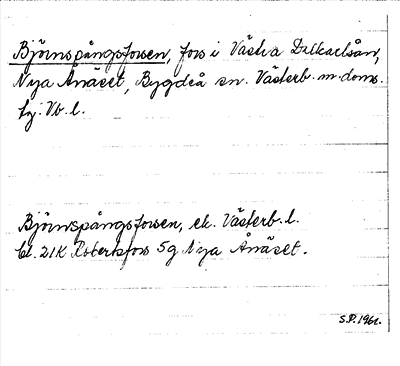 Björnspångsforsen, fors i Västra Dalkarlsån,
Nya Ånäset, Bygdeå sn. Västerb. m. doms.
tj. Vb. l.
Björnspångsforsen, ek. Västerb. l.
bl. 21K Robertsfors 5g Nya Ånäset.
S.P. 1961.